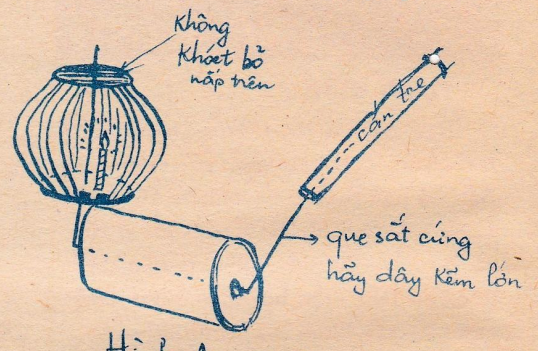 Không
Khoét bỏ
nắp trên
cán tre
que sắt cứng
hãy dây Kẽm lớn